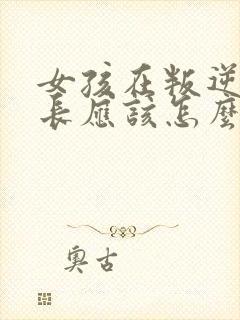 女孩在叛逆
長應該怎麼
奧古